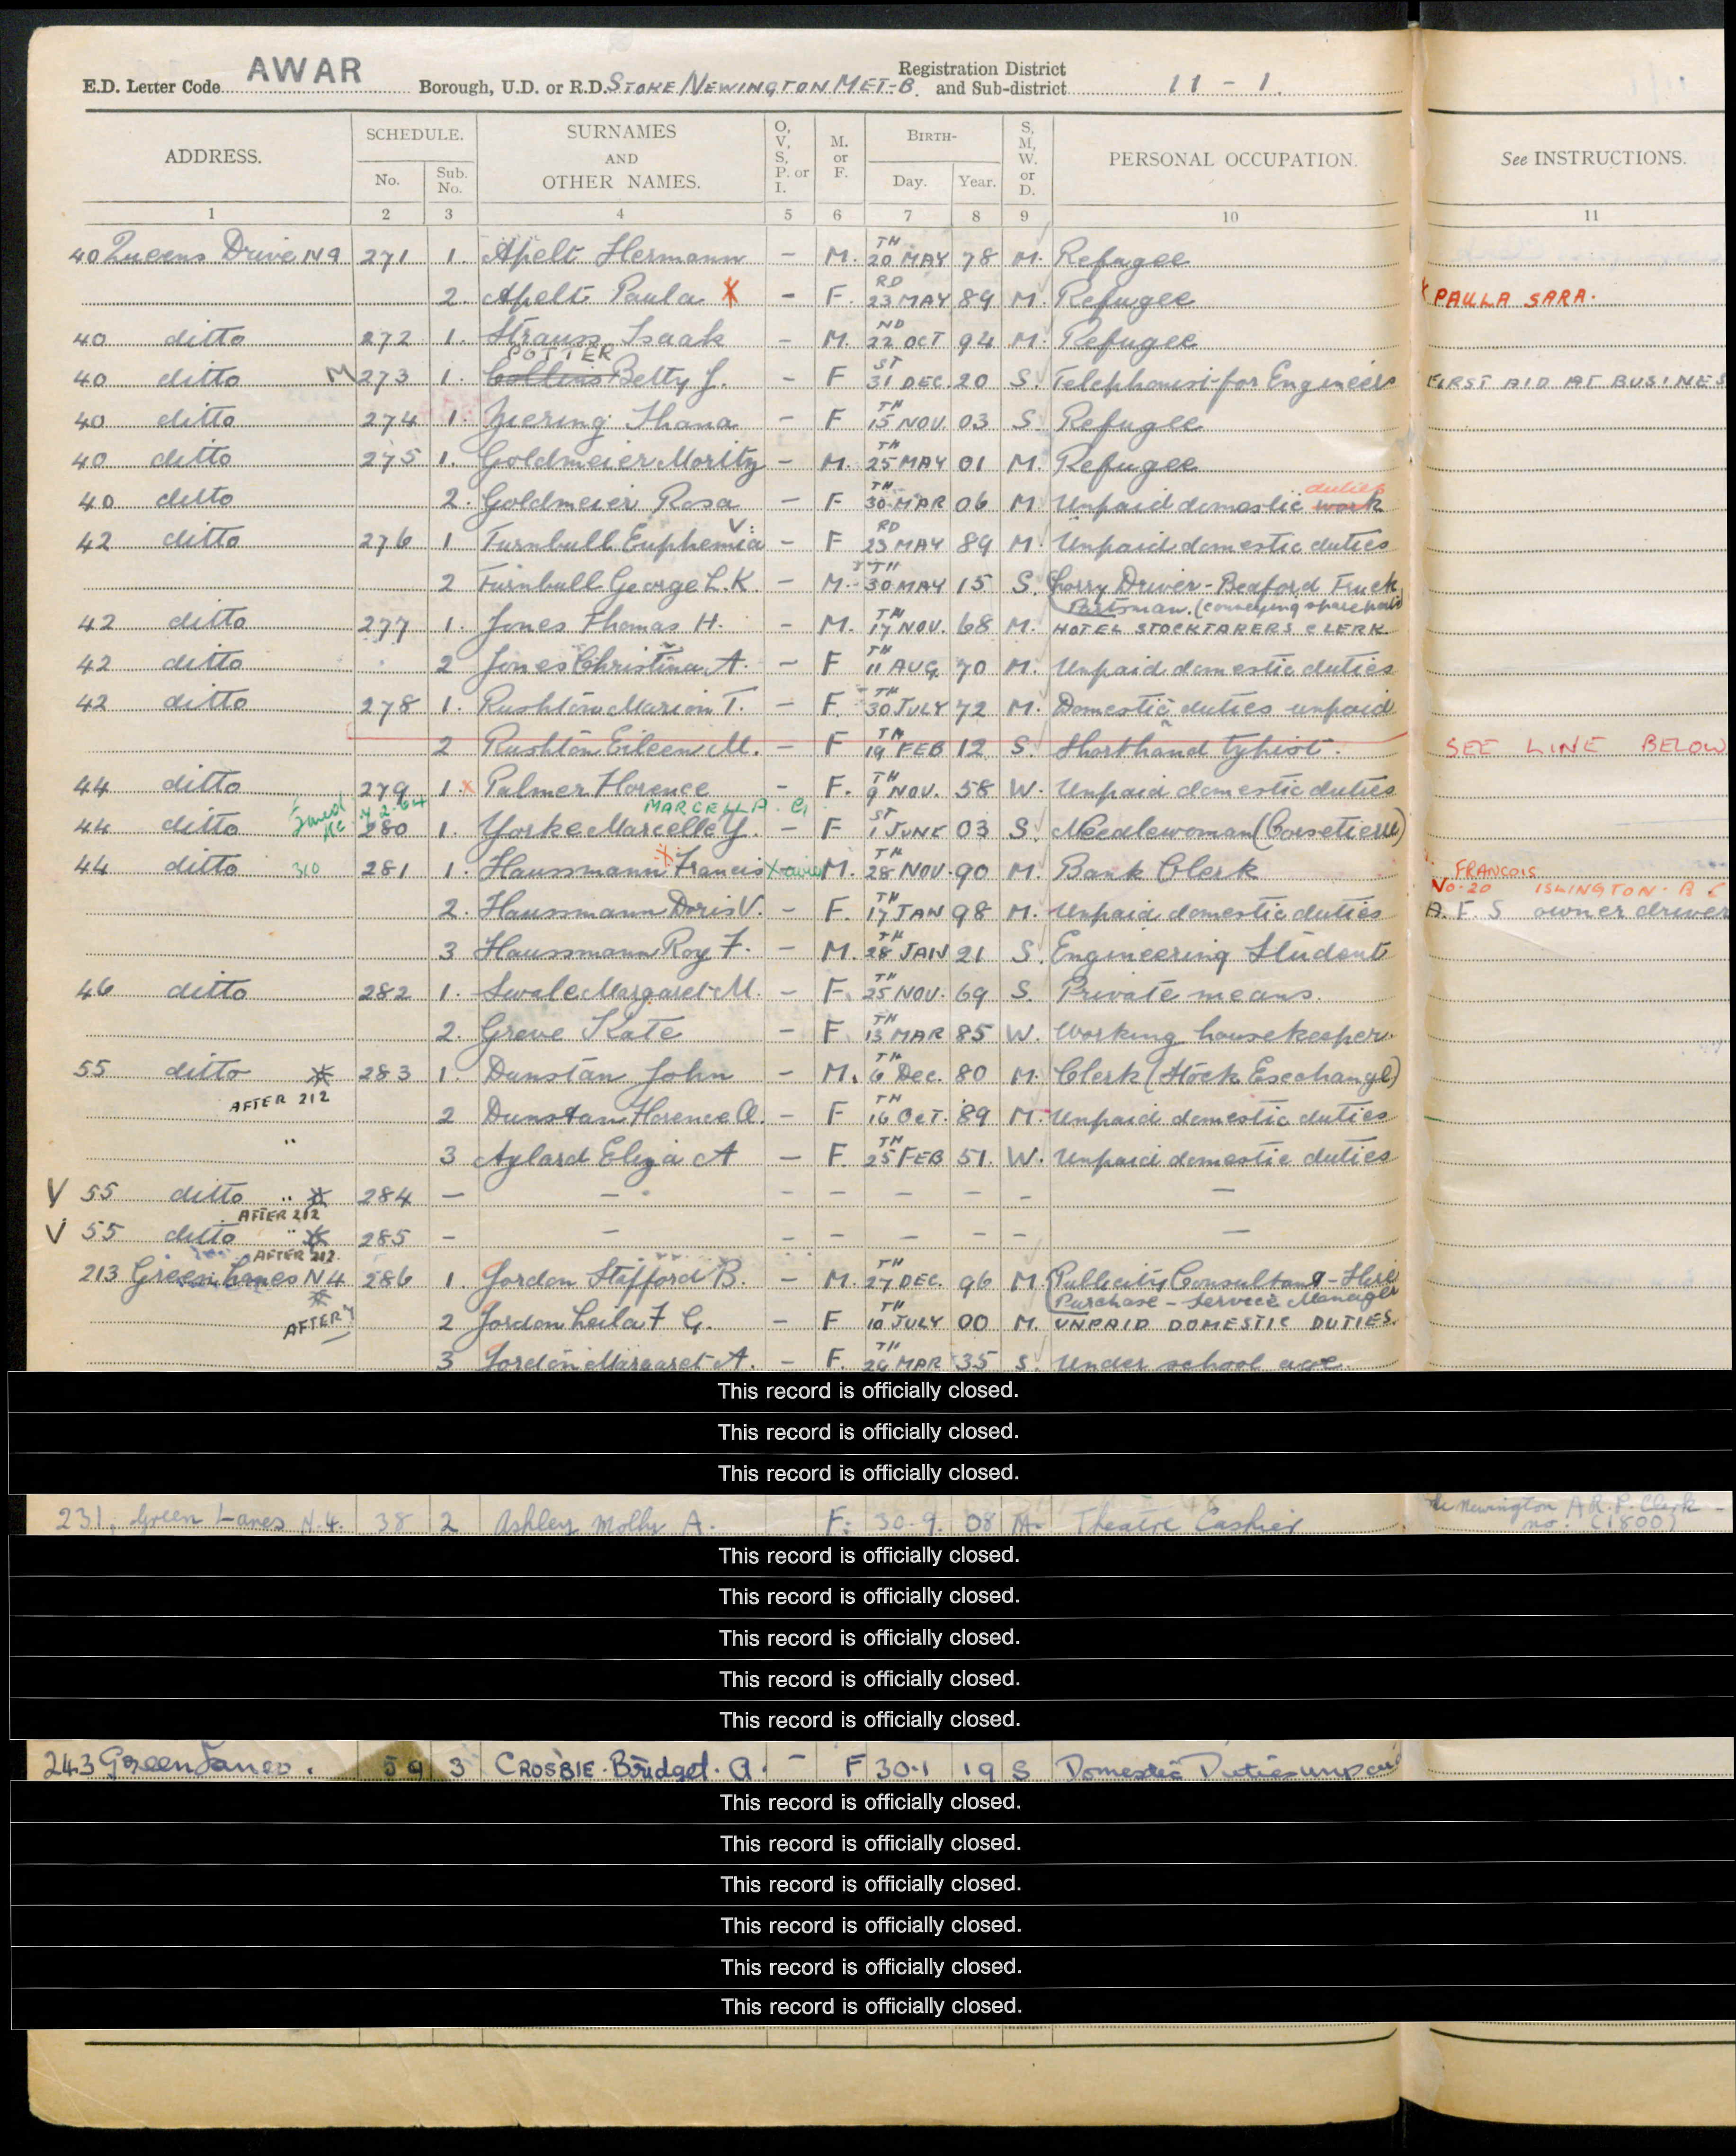 E.D. Letter Code AWAR Borough, U.D. or R.D. STOKE NEWINGTON MET-B. Registration District and Sub-district 11 - 1.
ADDRESS. SCHEDULE. No. Sub. No. SURNAMES AND OTHER NAMES. O, V, S, P. or I. M. or F. BIRTH- Day. Year. S, M, W. or D. PERSONAL OCCUPATION. See INSTRUCTIONS.
1 2 3 4 5 6 7 8 9 10 11
40 Queens Drive N4 271 1. Apelt Hermann - M. 20TH MAY 78 M. Refugee
2. Apelt Paula X - F. 23RD MAY 89 M. Refugee X PAULA SARA.
40 ditto 272 1. Strauss Isaak - M. 22ND OCT 94 M. Refugee
POTTER
40 ditto M 273 1. Collins Betty J. - F 31ST DEC. 20 S. Telephonist for Engineers FIRST AID AT BUSINES
40 ditto 274 1. - F 15TH NOV. 03 S. Refugee
40 ditto 275 1. Goldmeier Moritz - M. 25TH MAY 01 M. Refugee
40 ditto 2. Goldmeier Rosa - F 30TH MAR 06 M Unpaid domestic work duties
42 ditto 276 1 Turnbull Euphemia V. - F 23RD MAY 89 M. Unpaid domestic duties
2 Turnbull George L.K. - M. 30TH MAY 15 S. Lorry Driver - Bedford Truck
Partsman. (conveying spare parts)
42 ditto 277 1. Jones Thomas H. - M. 17TH NOV. 68 M. HOTEL STOCKTAKERS CLERK
42 ditto 2 Jones Christina A. - F 11TH AUG 70 M. Unpaid domestic duties
42 ditto 278 1. Rushton Marion T. - F. 30TH JULY 72 M. Domestic duties unpaid
2 Rushton Eileen M. - F 19TH FEB 12 S. Shorthand typist. SEE LINE BELOW
44 ditto 279 1. X Palmer Florence - F. 9TH NOV. 58 W. Unpaid domestic duties
MARCELLA. G.
44 ditto 280 1. Yorke Marcelle G. - F 1ST JUNE 03 S. Needlewoman (Corsetiere)
44 ditto 310 281 1. Haussmann X Francis Xavier M. 28TH NOV. 90 M. Bank Clerk FRANCOIS
No. 20 ISLINGTON. B C
2. Haussmann Doris V. - F. 17TH JAN 98 M. Unpaid domestic duties A.F.S owner driver
3 Haussmann Roy F. - M. 28TH JAN 21 S. Engineering Student
46 ditto 282 1. Swale Margaret M. - F. 25TH NOV. 69 S. Private means.
2. Greve Kate - F. 13TH MAR 85 W. Working housekeeper.
55 ditto 283 1. Dunstan John - M. 6TH Dec. 80 M. Clerk (Stock Exechange)
AFTER 212
2 Dunstan Florence A. - F 16TH OCT. 89 M. Unpaid domestic duties
" 3 Aylard Eliza A - F. 25TH FEB 51. W. Unpaid domestic duties
V 55 ditto " 284 - - - - - - - -
AFTER 212
V 55 ditto " 285 - - - - - - - -
AFTER 212
213 Green Lanes N4 286 1. Jordon Stafford B. - M. 27TH DEC. 96 M. Publicity Consultant - Hire
Purchase - Service Manager
AFTER 2 Jordon Leila F G. - F 10TH JULY 00 M. UNPAID DOMESTIC DUTIES.
3 Jordon Margaret A. - F. 29TH MAR 35 S. Under school age.
This record is officially closed.
This record is officially closed.
This record is officially closed.
231, Green Lanes N.4. 38 2 Ashley Molly A. F: 30.9. 08 M. Theatre Cashier Newington A.R.P. Clerk -
no. (1800)
This record is officially closed.
This record is officially closed.
This record is officially closed.
This record is officially closed.
This record is officially closed.
243 Green Lanes. 59 3 CROSBIE. Bridget. A. - F 30.1 19 S Domestic Duties unpaid
This record is officially closed.
This record is officially closed.
This record is officially closed.
This record is officially closed.
This record is officially closed.
This record is officially closed.